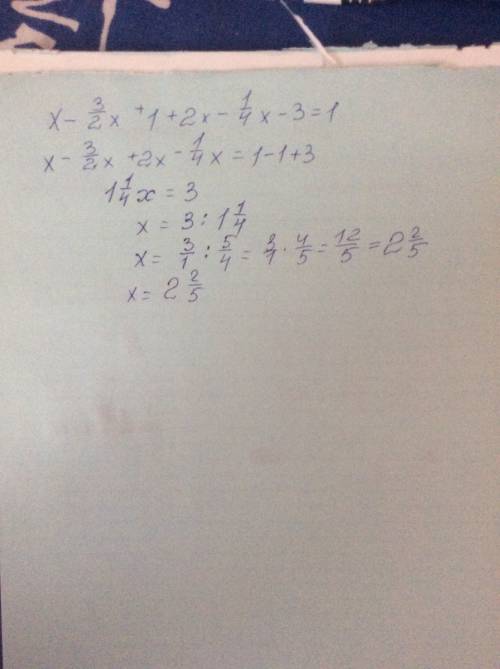 x - 3/2 x + 1 + 2x - 1/4 x - 3 = 1
x - 3/2 x + 2x - 1/4 x = 1 - 1 + 3
1 1/4 x = 3
x = 3 : 1 1/4
x = 3/1 : 5/4 = 3/1 · 4/5 = 12/5 = 2 2/5
x = 2 2/5